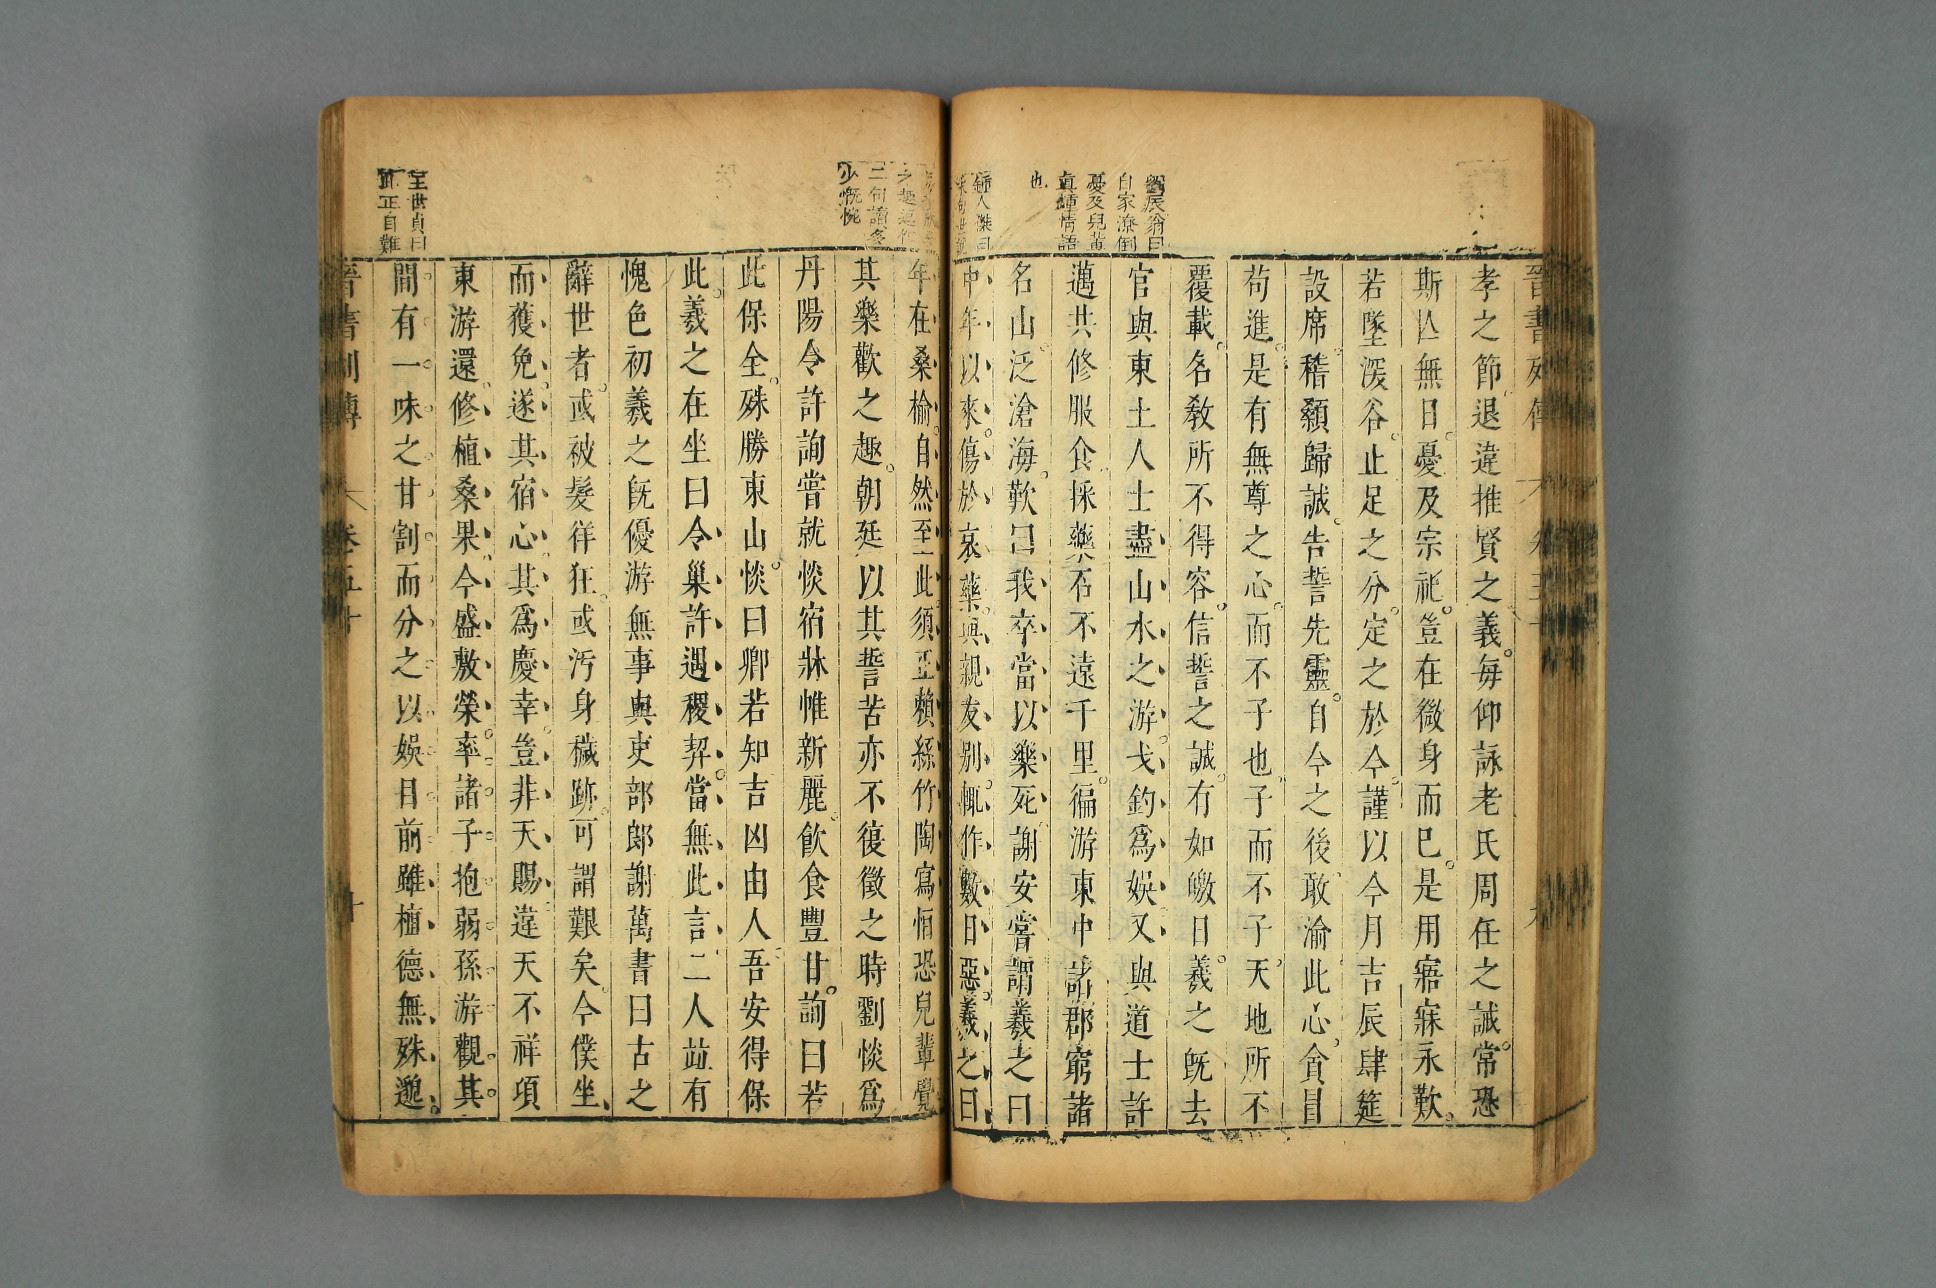 晉書列傳 卷五十 九
孝之節退違推賢之義每仰詠老氏周任之誡常恐
斯亾無日憂及宗祀豈在微身而已是用寤寐永歎
若墜深谷止足之分定之於今謹以今月吉辰肆筵
設席稽顙歸誠告誓先靈自今之後敢渝此心貪冒
苟進是有無尊之心而不子也子而不子天地所不
覆載名敎所不得容信誓之誠有如皦日羲之旣去
官與東土人士盡山水之游弋釣爲娛又與道士許
邁共修服食採藥石不遠千里徧游東中諸郡窮諸
名山泛滄海歎曰我卒當以樂死謝安嘗謂羲之曰
中年以來傷於哀樂與親友別輒作數日惡羲之曰
劉辰翁曰
自家潦倒
憂及兒輩
眞鍾情語
也
年在桑榆自然至此須正賴絲竹陶寫恒恐兒輩覺
其樂歡之趣朝廷以其誓苦亦不復徵之時劉惔爲
丹陽令許詢嘗就惔宿牀帷新麗飮食豐甘詢曰若
此保全殊勝東山惔曰卿若知吉凶由人吾安得保
此羲之在坐曰令巢許遇稷契當無此言二人竝有
愧色初羲之旣優游無事與吏部郞謝萬書曰古之
辭世者或被髮徉狂或汚身穢跡可謂艱矣今僕坐
而獲免遂其宿心其爲慶幸豈非天賜違天不祥項
東游還修植桑果今盛敷榮率諸子抱弱孫游觀其
間有一味之甘割而分之以娛目前雖植德無殊邈
二句讀多
少慨惋
王世貞曰
此正自難
晉書列傳 卷五十 十